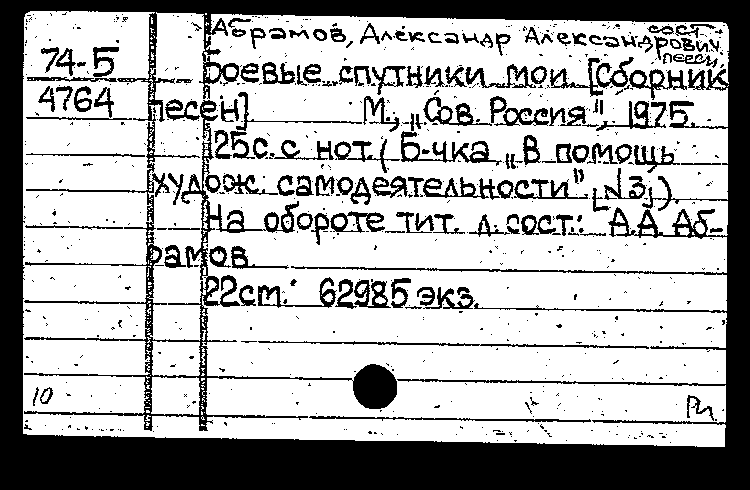 Абрамов, Александр Александрович, сост.
песен
74-5 Боевые спутники мои. [Сборник
4764 песен]. М., „Сов. Россия", 1975.
125с. с нот. (Б-чка „В помощь
худож. самодеятельности". №3).
На обороте тит. л. сост.: А.А. Аб-
рамов.
22см. 62985 экз.
10